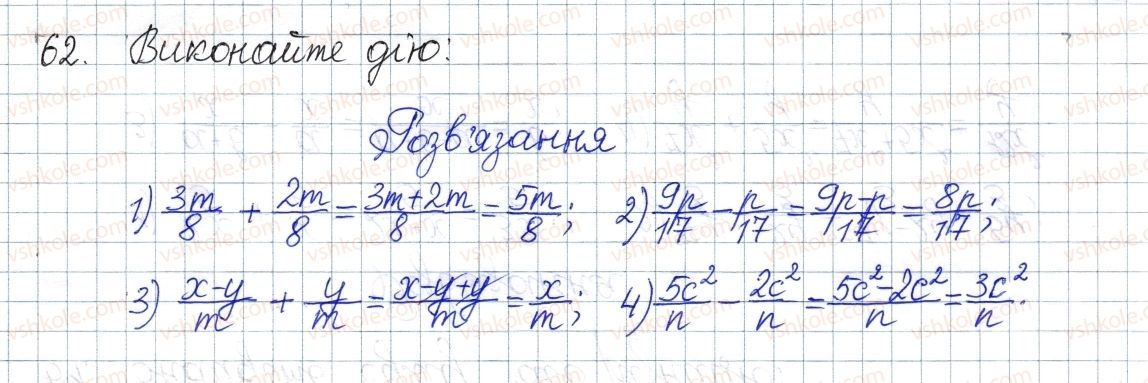 62. Виконайте дію:
Розв'язання
1) 3m/8 + 2m/8 = (3m+2m)/8 = 5m/8; 2) 9p/17 - p/17 = (9p-p)/17 = 8p/17;
3) (x-y)/m + y/m = (x-y+y)/m = x/m; 4) 5c²/n - 2c²/n = (5c²-2c²)/n = 3c²/n.